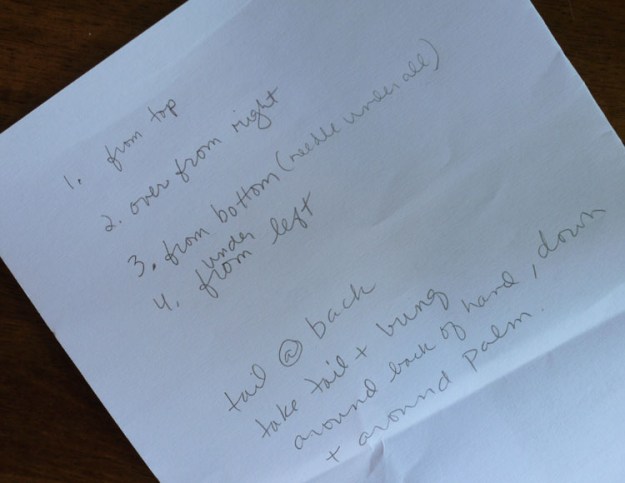 1. from top
2. over from right
3. from bottom (needle under all)
under
4. from left
tail @ back
take tail + bring
around back of hand, down
+ around palm.